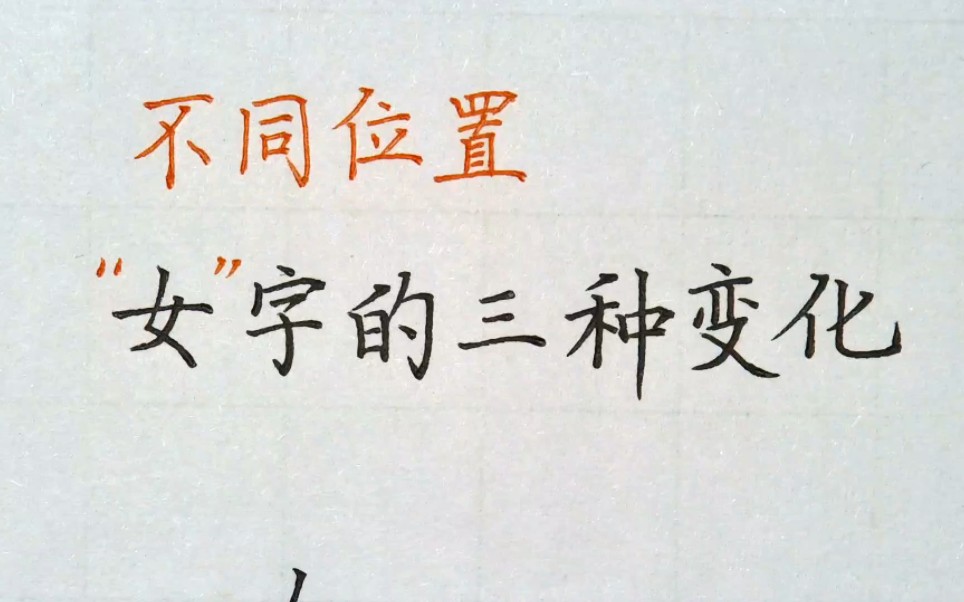 不同位置
“女”字的三种变化